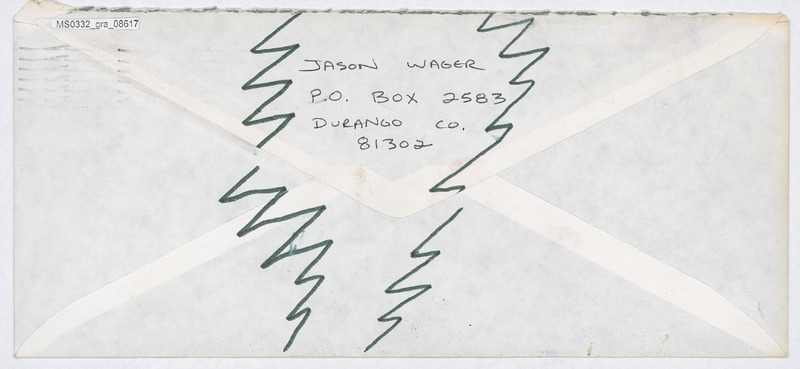 MS0332_gra_08617
JASON WAGER
P.O. BOX 2583
DURANGO CO.
81302